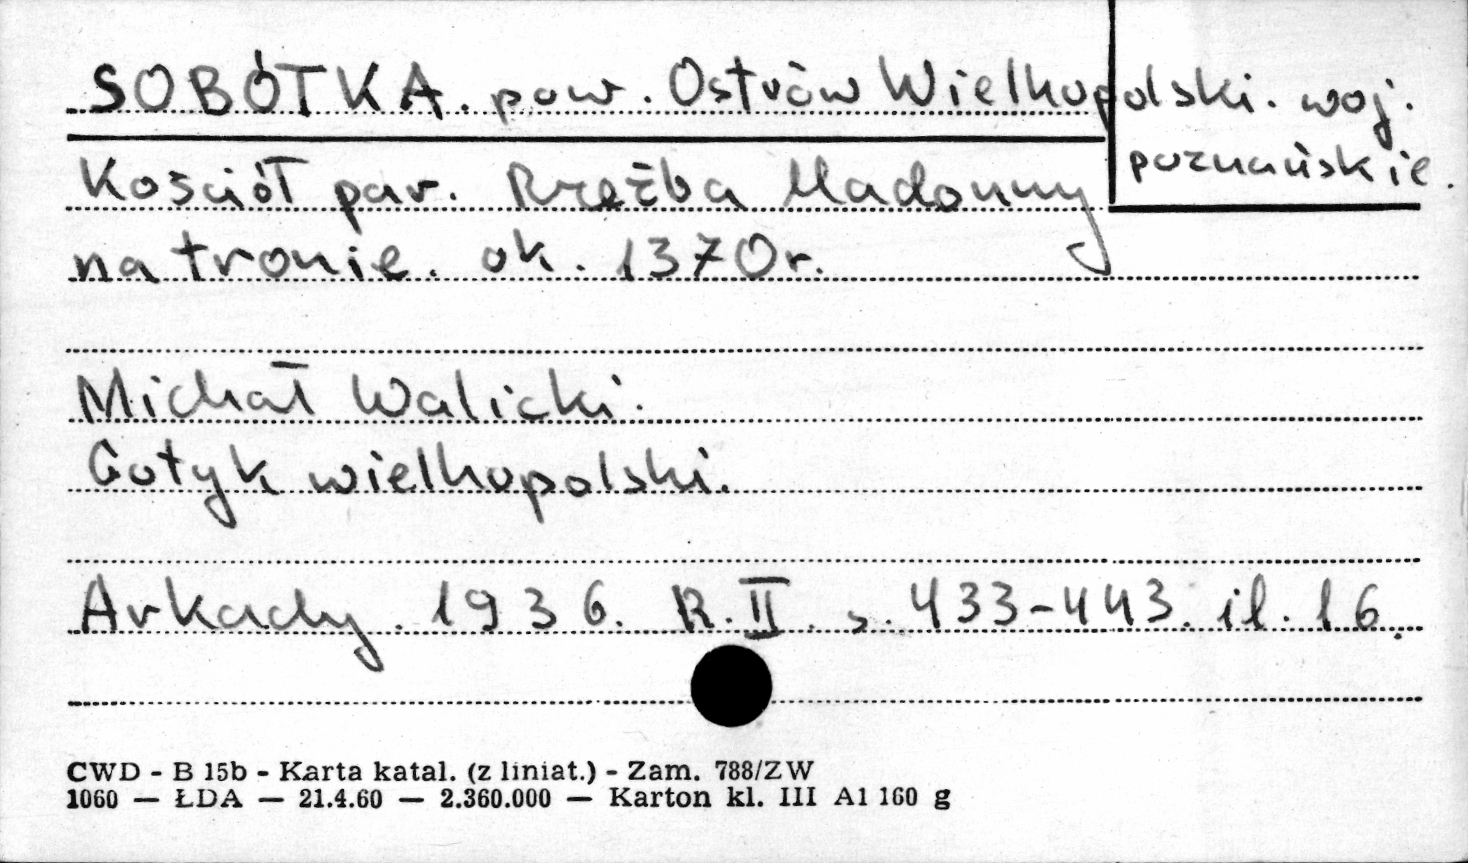 SOBÓTKA. pow. Ostrów Wielkopolski. woj.
poznańskie.
Kościół par. Rzeźba Madonny
na tronie. ok. 1370r.
Michał Walicki.
Gotyk wielkopolski.
Arkady. 1936. R.II. s. 433-443. il. 16.
CWD - B 15b - Karta katal. (z liniat.) - Zam. 788/ZW
1060 — ŁDA — 21.4.60 — 2.360.000 — Karton kl. III A1 160 g